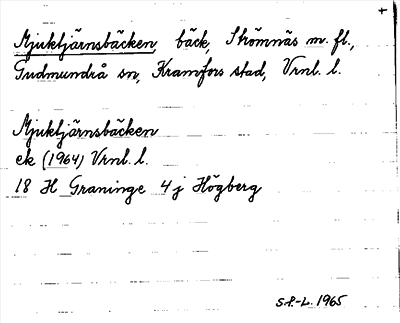 +
Mjuktjärnsbäcken, bäck, Strömnäs m. fl.,
Gudmundrå sn, Kramfors stad, Vrnl. l.
Mjuktjärnsbäcken
ek (1964) Vrnl. l.
18 H Graninge 4 j Högberg
S.P.-L. 1965